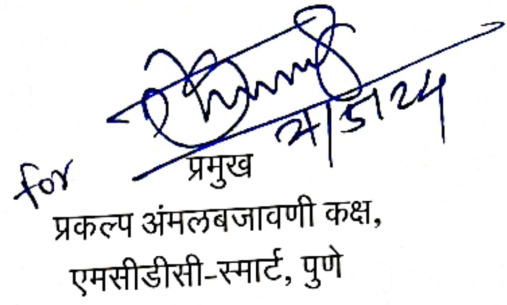 for प्रमुख
प्रकल्प अंमलबजावणी कक्ष,
एमसीडीसी-स्मार्ट, पुणे